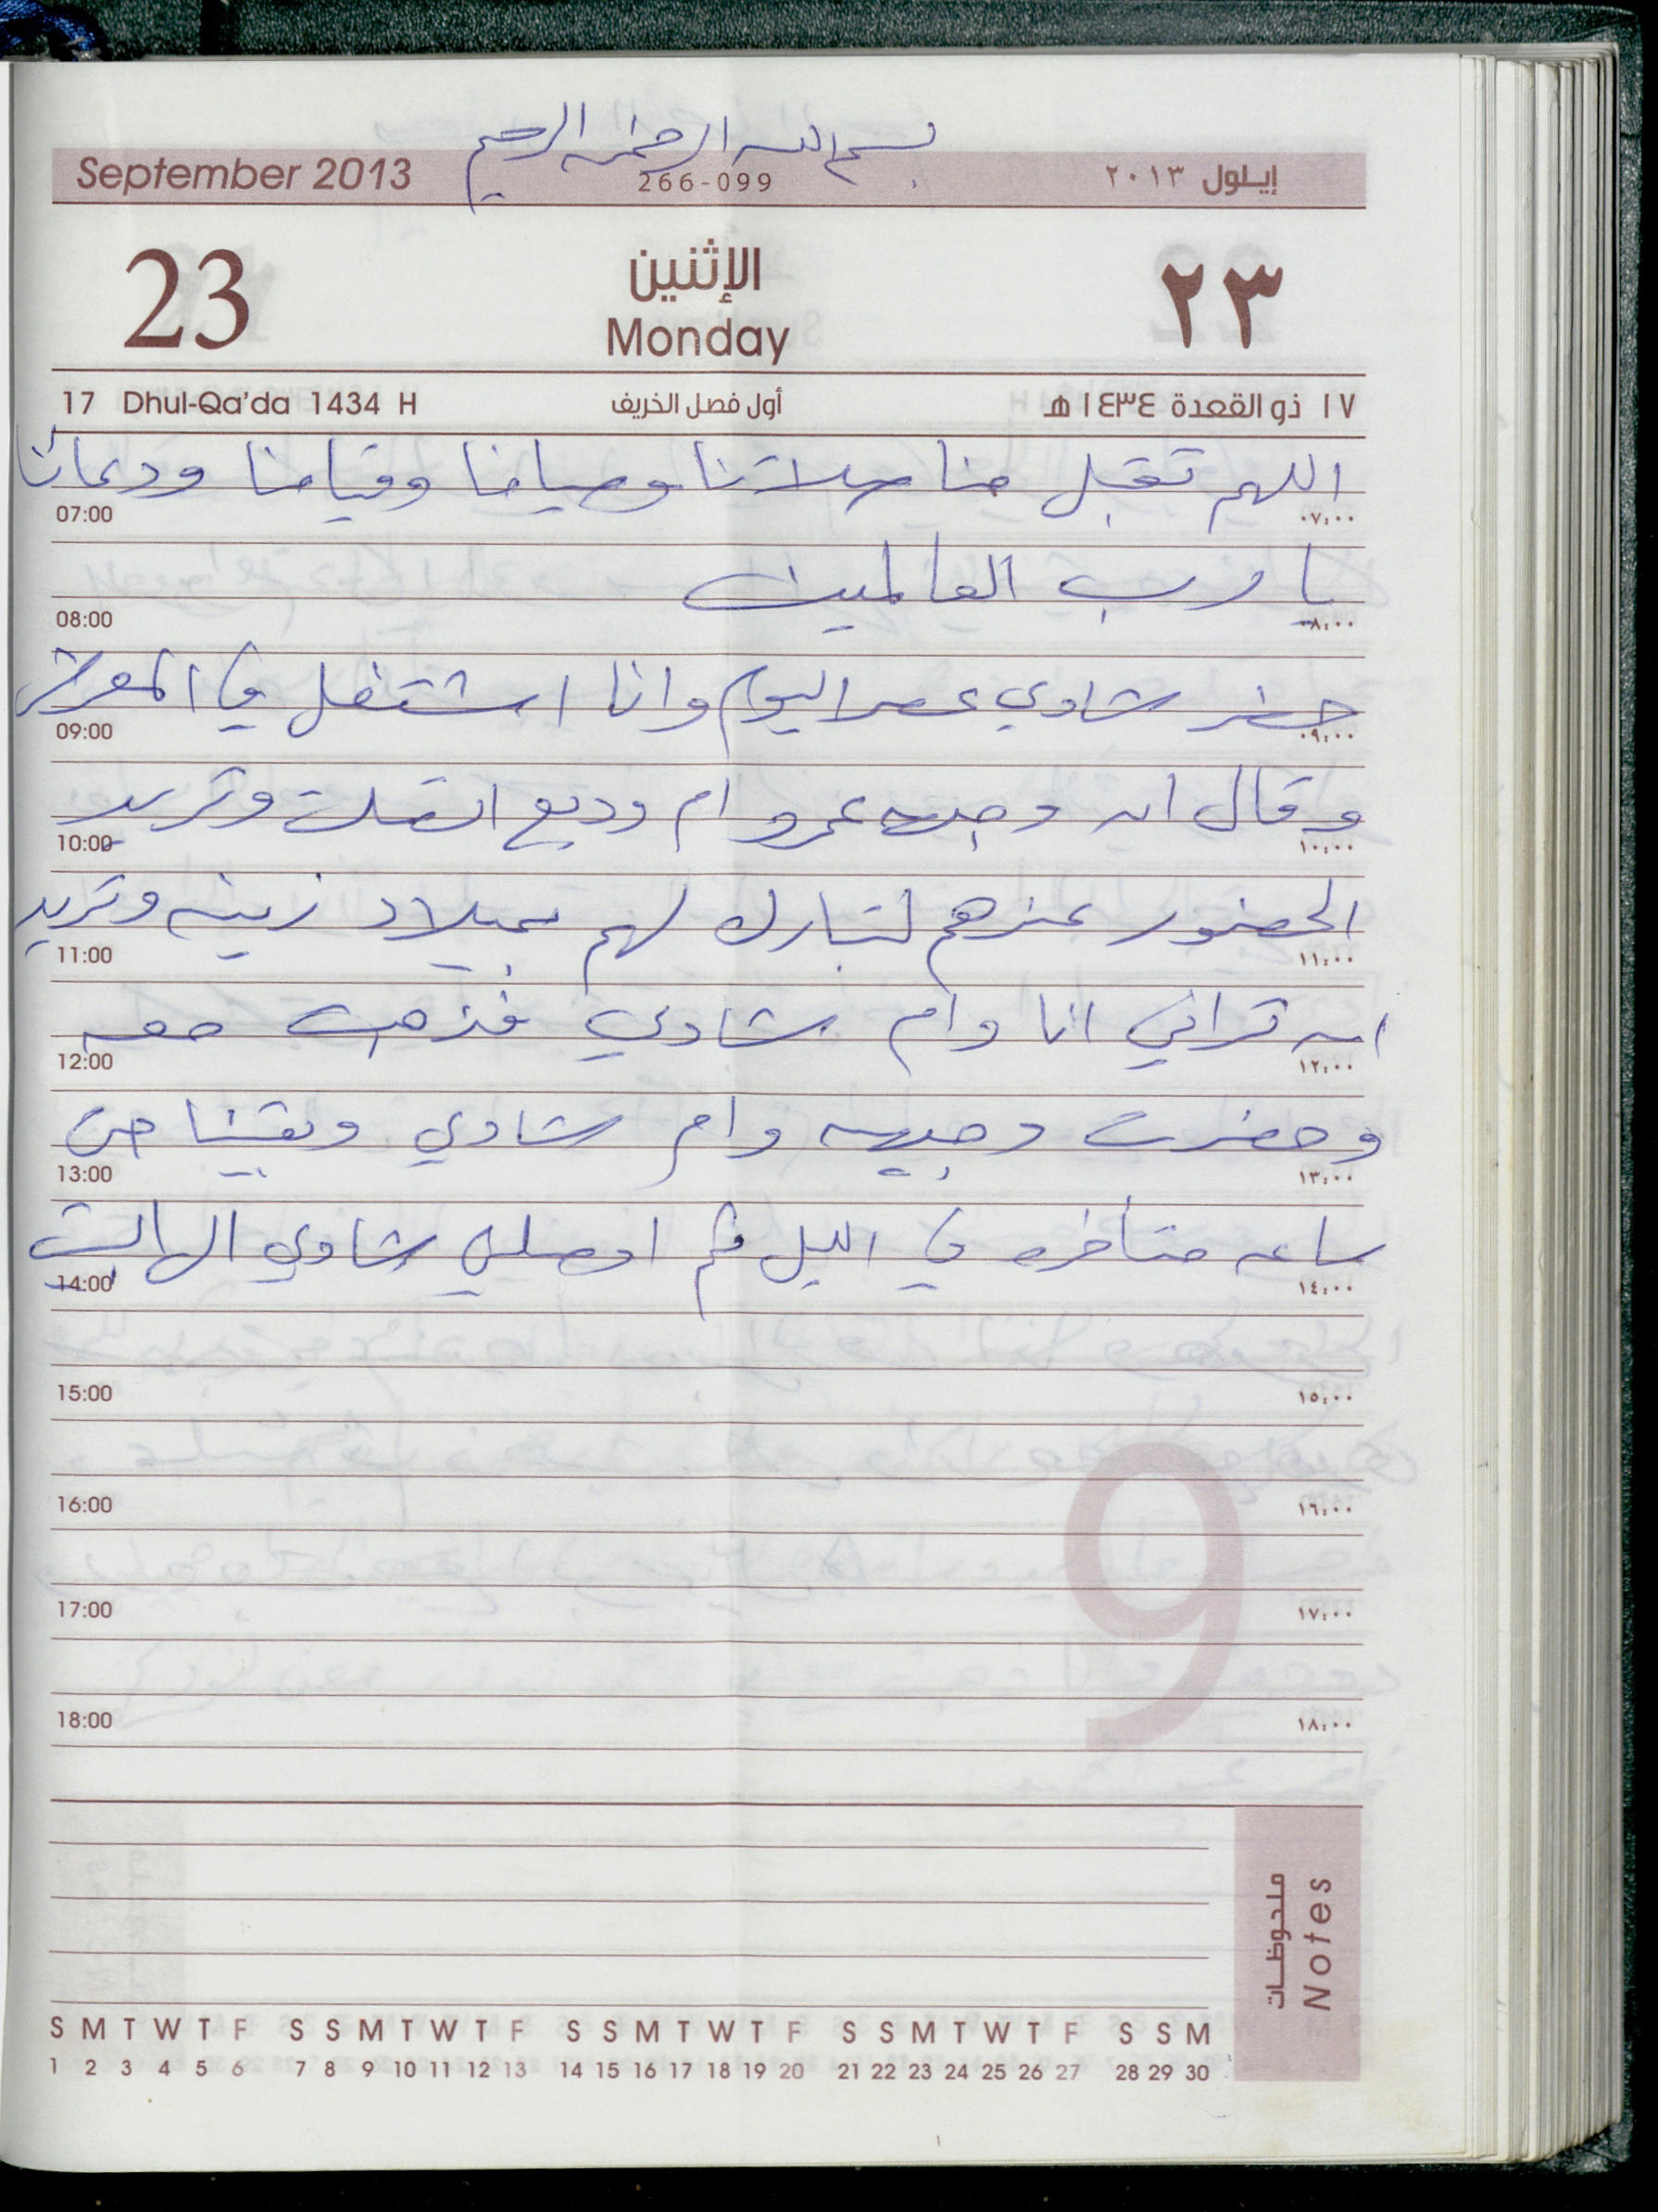 بسم الله الرحمن الرحيم
September 2013 266-099 إيلول ٢٠١٣
23 الإثنين ٢٣
Monday
17 Dhul-Qa'da 1434 H أول فصل الخريف ١٧ ذو القعدة ١٤٣٤ هـ
اللهم تقبل منا صلاتنا وصيامنا وقيامنا ودعائنا
07:00 ٠٧:٠٠
يا رب العالمين
08:00 ٠٨:٠٠
حضر شادي عصر اليوم وانا اشتغل في
09:00 ٠٩:٠٠
وقال ان وجيه عمر وام وديع اتصلت وتريد
10:00 ١٠:٠٠
الحضور عندهم لتبارك لهم بميلاد زينه وتريد
11:00 ١١:٠٠
ان تراني انا وام شادي فذهبت معه
12:00 ١٢:٠٠
وحضرت وجيهه وام شادي وبقينا حتى
13:00 ١٣:٠٠
ساعه متأخره في الليل ثم اوصلني شادي الى البيت
14:00 ١٤:٠٠
15:00 ١٥:٠٠
16:00 ١٦:٠٠
17:00 ١٧:٠٠
18:00 ١٨:٠٠
9
ملحوظات
Notes
S M T W T F S S M T W T F S S M T W T F S S M T W T F S S M
1 2 3 4 5 6 7 8 9 10 11 12 13 14 15 16 17 18 19 20 21 22 23 24 25 26 27 28 29 30